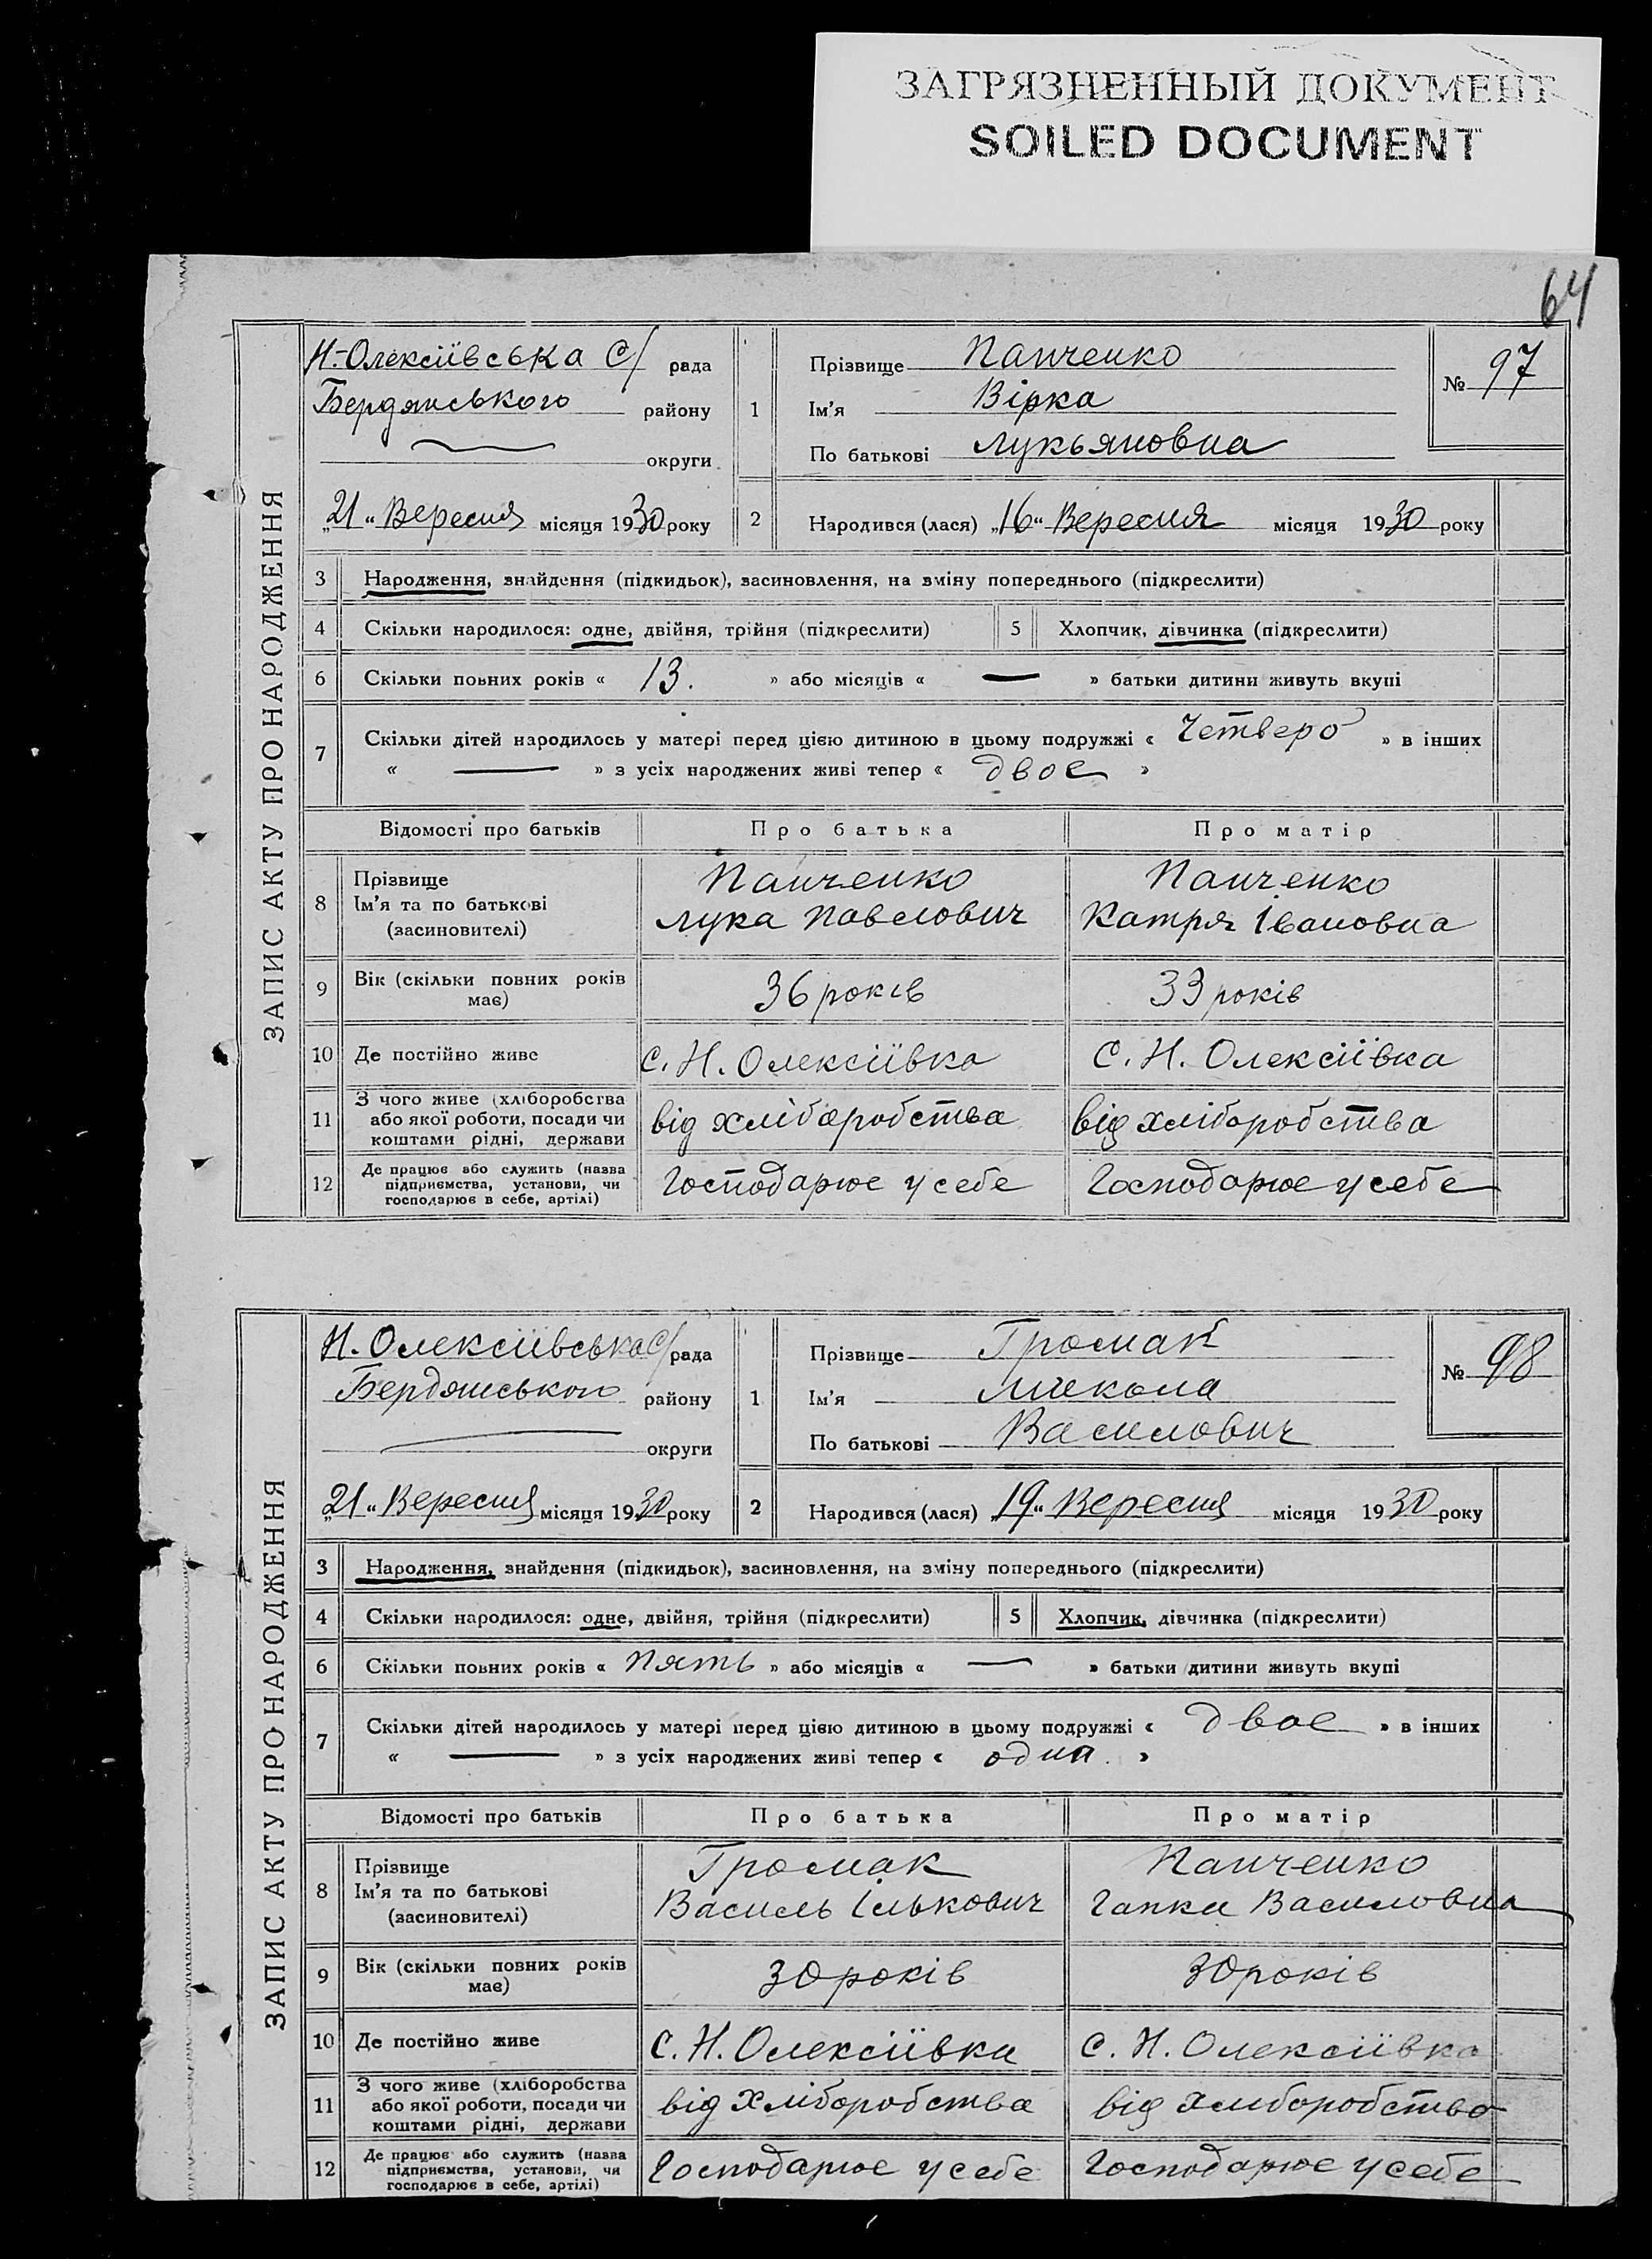 ЗАГРЯЗНЕННЫЙ ДОКУМЕНТ
SOILED DOCUMENT
64
ЗАПИС АКТУ ПРО НАРОДЖЕННЯ
Н-Олексіївська С/ рада
Бердянського району
округи
„21“ Вересня місяця 1930 року
1
Прізвище Панченко
Ім'я Вірка
По батькові Лукьяновна
№ 97
2 Народився (лася) „16“ Вересня місяця 1930 року
3 Народження, знайдення (підкидьок), засиновлення, на зміну попереднього (підкреслити)
4 Скільки народилося: одне, двійня, трійня (підкреслити) 5 Хлопчик, дівчинка (підкреслити)
6 Скільки повних років « 13. » або місяців « — » батьки дитини живуть вкупі
7 Скільки дітей народилось у матері перед цією дитиною в цьому подружжі « Четверо » в інших
« — » з усіх народжених живі тепер « двое »
Відомості про батьків Про батька Про матір
8 Прізвище Панченко Панченко
Ім'я та по батькові Лука Павлович Катря Івановна
(засиновителі)
9 Вік (скільки повних років має) 36 років 33 років
10 Де постійно живе С. Н. Олексіївка С. Н. Олексіївка
11 З чого живе (хліборобства
або якої роботи, посади чи від хліборобства від хліборобства
коштами рідні, держави
12 Де працює або служить (назва
підприємства, установи, чи Господарює у себе Господарює у себе
господарює в себе, артілі)
ЗАПИС АКТУ ПРО НАРОДЖЕННЯ
Н. Олексіївська С/ рада
Бердянського району
округи
„21“ Вересня місяця 1930 року
1
Прізвище Громак
Ім'я Микола
По батькові Василович
№ 98
2 Народився (лася) „19“ Вересня місяця 1930 року
3 Народження, знайдення (підкидьок), засиновлення, на зміну попереднього (підкреслити)
4 Скільки народилося: одне, двійня, трійня (підкреслити) 5 Хлопчик, дівчинка (підкреслити)
6 Скільки повних років « пять » або місяців « — » батьки дитини живуть вкупі
7 Скільки дітей народилось у матері перед цією дитиною в цьому подружжі « двое » в інших
« — » з усіх народжених живі тепер « одна. »
Відомості про батьків Про батька Про матір
8 Прізвище Громак Панченко
Ім'я та по батькові Василь Ількович Гапка Василовна
(засиновителі)
9 Вік (скільки повних років має) 30 років 30 років
10 Де постійно живе С. Н. Олексіївка С. Н. Олексіївка
11 З чого живе (хліборобства
або якої роботи, посади чи від хліборобства від хліборобства
коштами рідні, держави
12 Де працює або служить (назва
підприємства, установи, чи Господарює у себе Господарює у себе
господарює в себе, артілі)